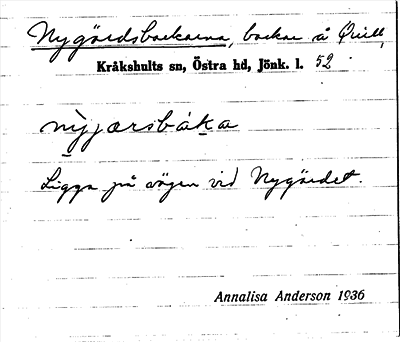 Nygärdsbackarna, backar å Qvill,
Kråkshults sn, Östra hd, Jönk. l. 52
nỳjærsbàka
Ligga på vägen vid Nygärdet.
Annalisa Anderson 1936